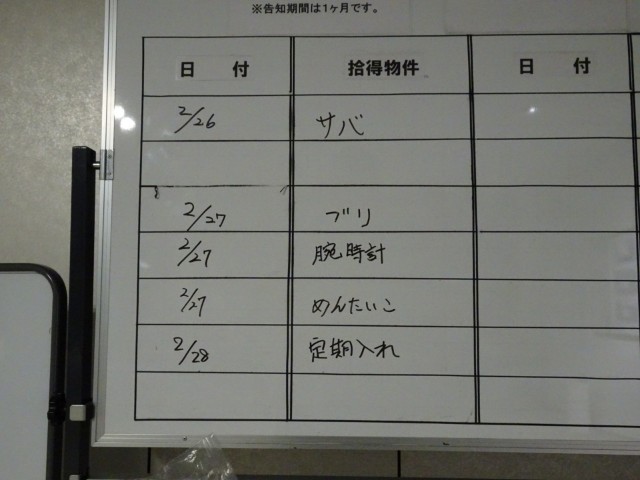 ※告知期間は1ヶ月です。
日 付 拾得物件 日 付
2/26 サバ
2/27 ブリ
2/27 腕時計
2/27 めんたいこ
2/28 定期入れ